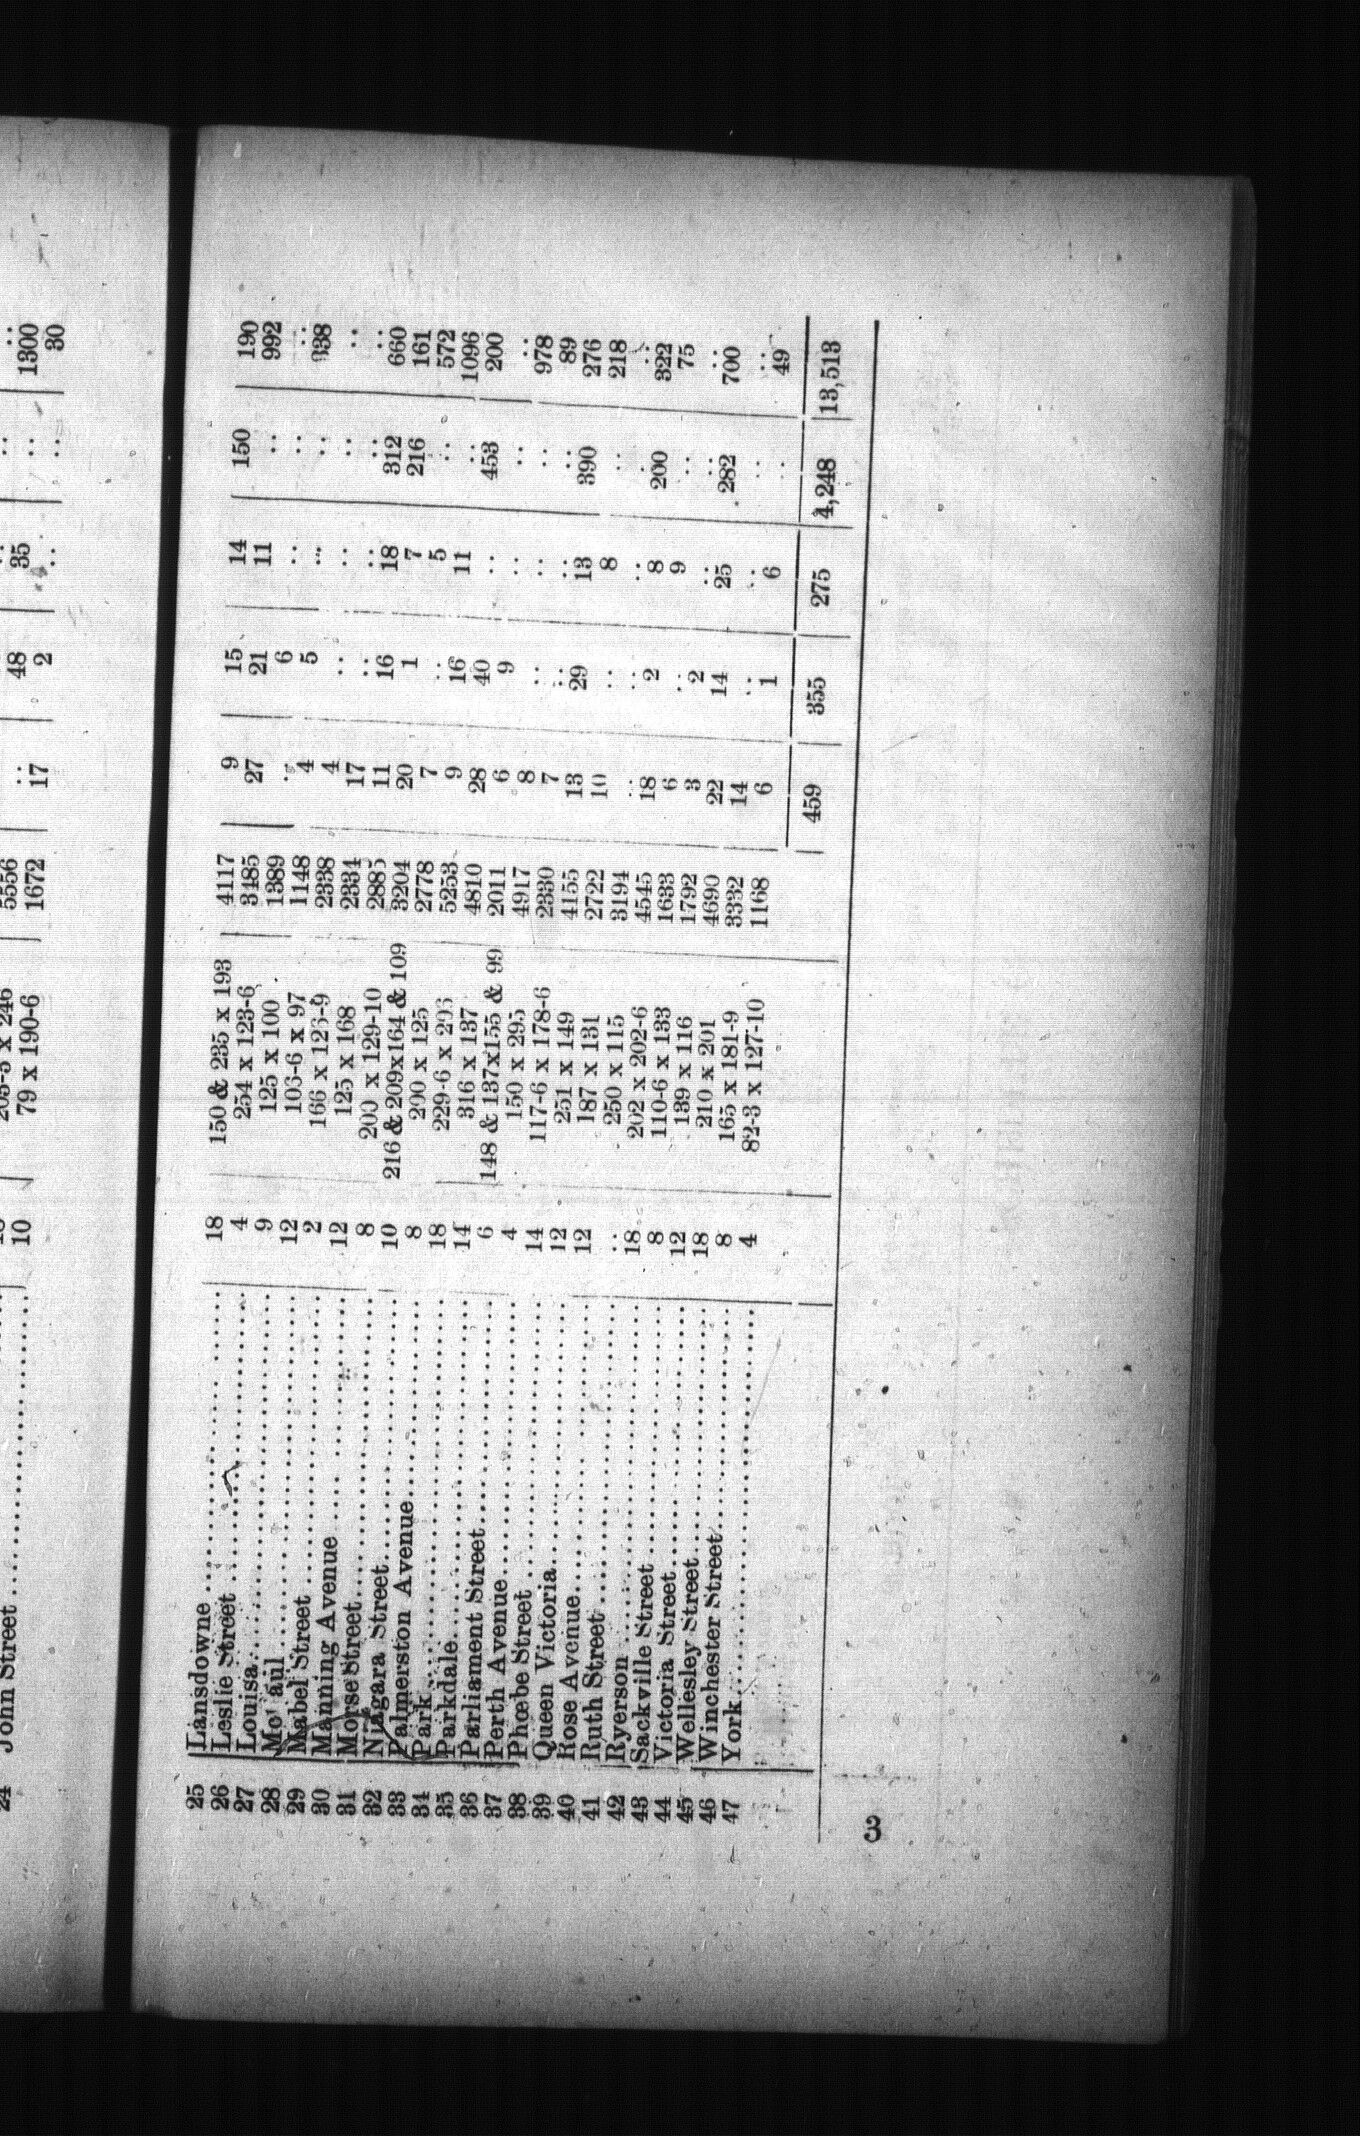 205-3 x 246 5556 .. 48 35 .. 1300
24 John Street 10 79 x 190-6 1672 17 2 .. .. 30
25 Lansdowne 18 150 & 235 x 193 4117 9 15 14 150 190
26 Leslie Street 4 254 x 123-6 3485 27 21 11 .. 992
27 Louisa 9 125 x 100 1389 .. 6 .. .. ..
28 12 103-6 x 97 1148 4 5 .. .. 938
29 Mabel Street 2 166 x 123-9 2338 4 .. .. .. ..
30 Manning Avenue 12 125 x 168 2334 17 .. .. .. ..
31 Morse Street 8 200 x 129-10 2885 11 16 18 312 660
32 Niagara Street 10 216 & 209x164 & 109 3204 20 1 7 216 161
33 Palmerston Avenue 8 200 x 125 2778 7 .. 5 .. 572
34 Park 18 229-6 x 293 5253 9 16 11 .. 1096
35 Parkdale 14 316 x 137 4810 28 40 .. 453 200
36 Parliament Street 6 148 & 137x155 & 99 2011 6 9 .. .. ..
37 Perth Avenue 4 150 x 295 4917 8 .. .. .. 978
38 Phœbe Street 14 117-6 x 178-6 2330 7 .. .. .. 89
39 Queen Victoria 12 251 x 149 4155 13 29 13 390 276
40 Rose Avenue 12 187 x 131 2722 10 .. 8 .. 218
41 Ruth Street .. 250 x 115 3194 .. .. .. .. ..
42 Ryerson 18 202 x 202-6 4545 18 2 8 200 322
43 Sackville Street 8 110-6 x 133 1633 6 .. 9 .. 75
44 Victoria Street 12 139 x 116 1792 3 2 .. .. ..
45 Wellesley Street 18 210 x 201 4690 22 14 25 282 700
46 Winchester Street 8 165 x 181-9 3332 14 .. .. .. ..
47 York 4 82-3 x 127-10 1168 6 1 6 .. 49
459 355 275 4,248 13,513
3